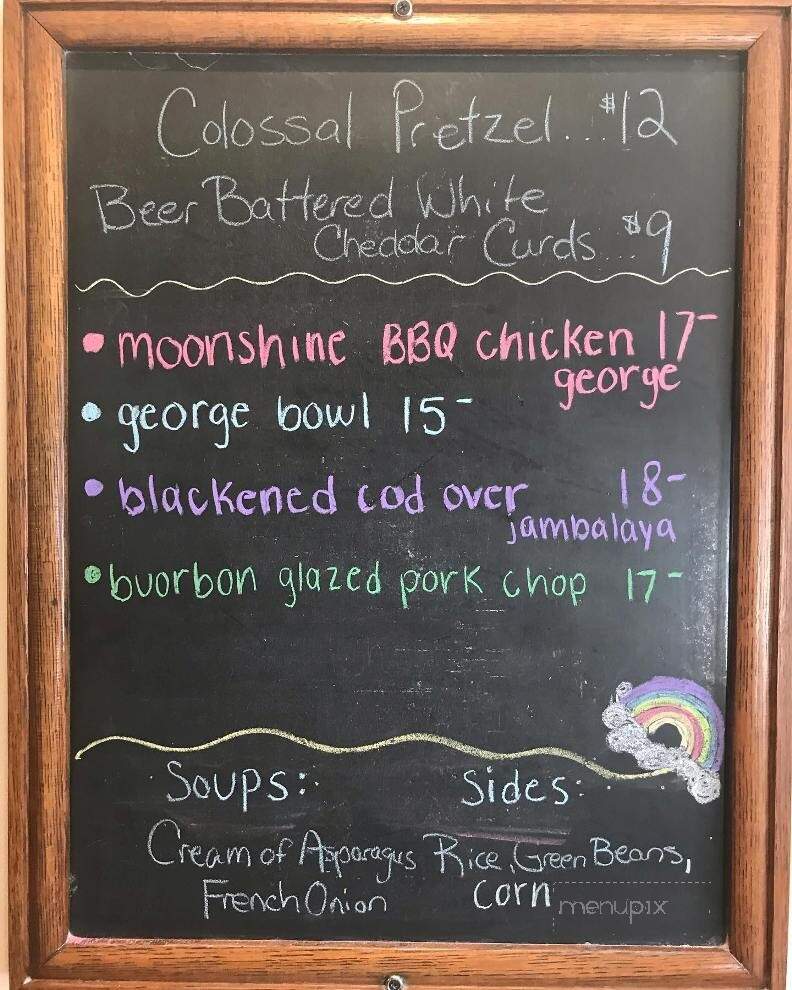 Colossal Pretzel...$12
Beer Battered White
Cheddar Curds...$9
• moonshine BBQ chicken 17-
george
• george bowl 15-
• blackened cod over 18-
jambalaya
• buorbon glazed pork chop 17-
Soups: Sides:
Cream of Asparagus Rice, Green Beans,
French Onion corn
menupix